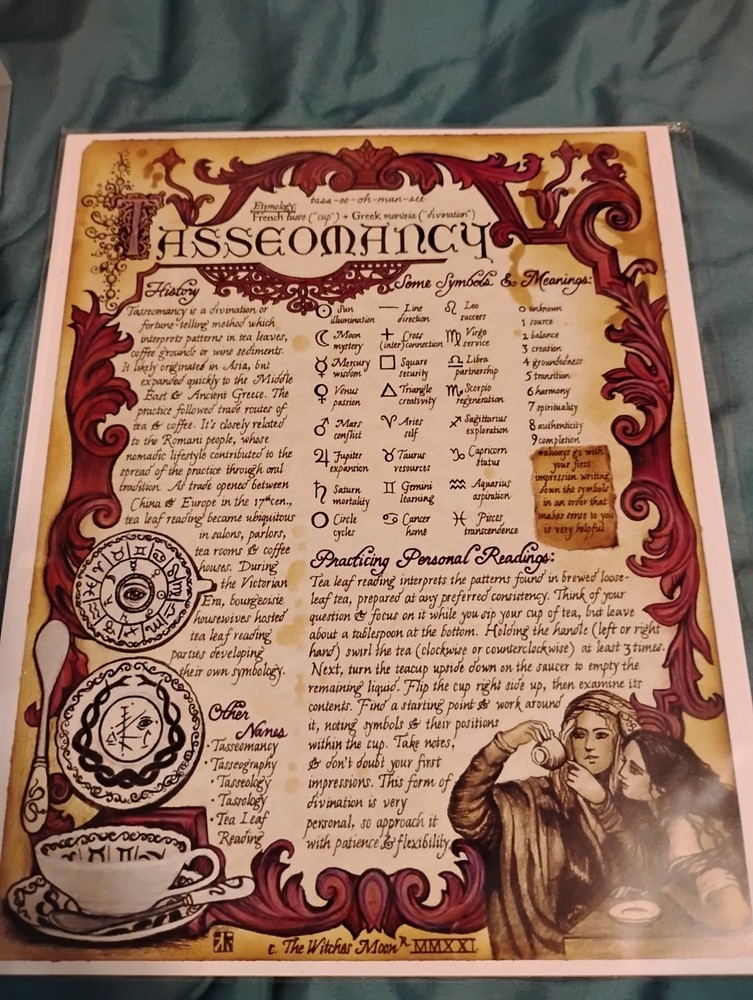 tass-ee-oh-man-see
Etymology:
French tasse ("cup") + Greek manteia ("divination")
TASSEOMANCY
History
Tasseomancy is a divination or
fortune-telling method which
interprets patterns in tea leaves,
coffee grounds or wine sediments.
It likely originated in Asia, but
expanded quickly to the Middle
East & Ancient Greece. The
practice followed trade routes of
tea & coffee. It's closely related
to the Romani people, whose
nomadic lifestyle contributed to the
spread of the practice through oral
tradition. As trade opened between
China & Europe in the 17th cen.,
tea leaf reading became ubiquitous
in salons, parlors,
tea rooms & coffee
houses. During
the Victorian
Era, bourgeoisie
housewives hosted
tea leaf reading
parties developing
their own symbology.
Other
Names
• Tasseomancy
• Tasseography
• Tasseology
• Tassology
• Tea Leaf
Reading
Some Symbols & Meanings:
☉ Sun
illumination
☾ Moon
mystery
☿ Mercury
wisdom
♀ Venus
passion
♂ Mars
conflict
♃ Jupiter
expansion
♄ Saturn
mortality
○ Circle
cycles
— Line
direction
+ Cross
(inter)connection
□ Square
security
△ Triangle
creativity
♈ Aries
self
♉ Taurus
resources
♊ Gemini
learning
♋ Cancer
home
♌ Leo
success
♍ Virgo
service
♎ Libra
partnership
♏ Scorpio
regeneration
♐ Sagittarius
exploration
♑ Capricorn
status
♒ Aquarius
aspiration
♓ Pisces
transcendence
0 unknown
1 source
2 balance
3 creation
4 groundedness
5 transition
6 harmony
7 spirituality
8 authenticity
9 completion
*always go with
your first
impression. writing
down the symbols
in an order that
makes sense to you
is very helpful
Practicing Personal Readings:
Tea leaf reading interprets the patterns found in brewed loose-
leaf tea, prepared at any preferred consistency. Think of your
question & focus on it while you sip your cup of tea, but leave
about a tablespoon at the bottom. Holding the handle (left or right
hand) swirl the tea (clockwise or counterclockwise) at least 3 times.
Next, turn the teacup upside down on the saucer to empty the
remaining liquid. Flip the cup right side up, then examine its
contents. Find a starting point & work around
it, noting symbols & their positions
within the cup. Take notes,
& don't doubt your first
impressions. This form of
divination is very
personal, so approach it
with patience & flexibility.
c. The Witches Moon R MMXXI